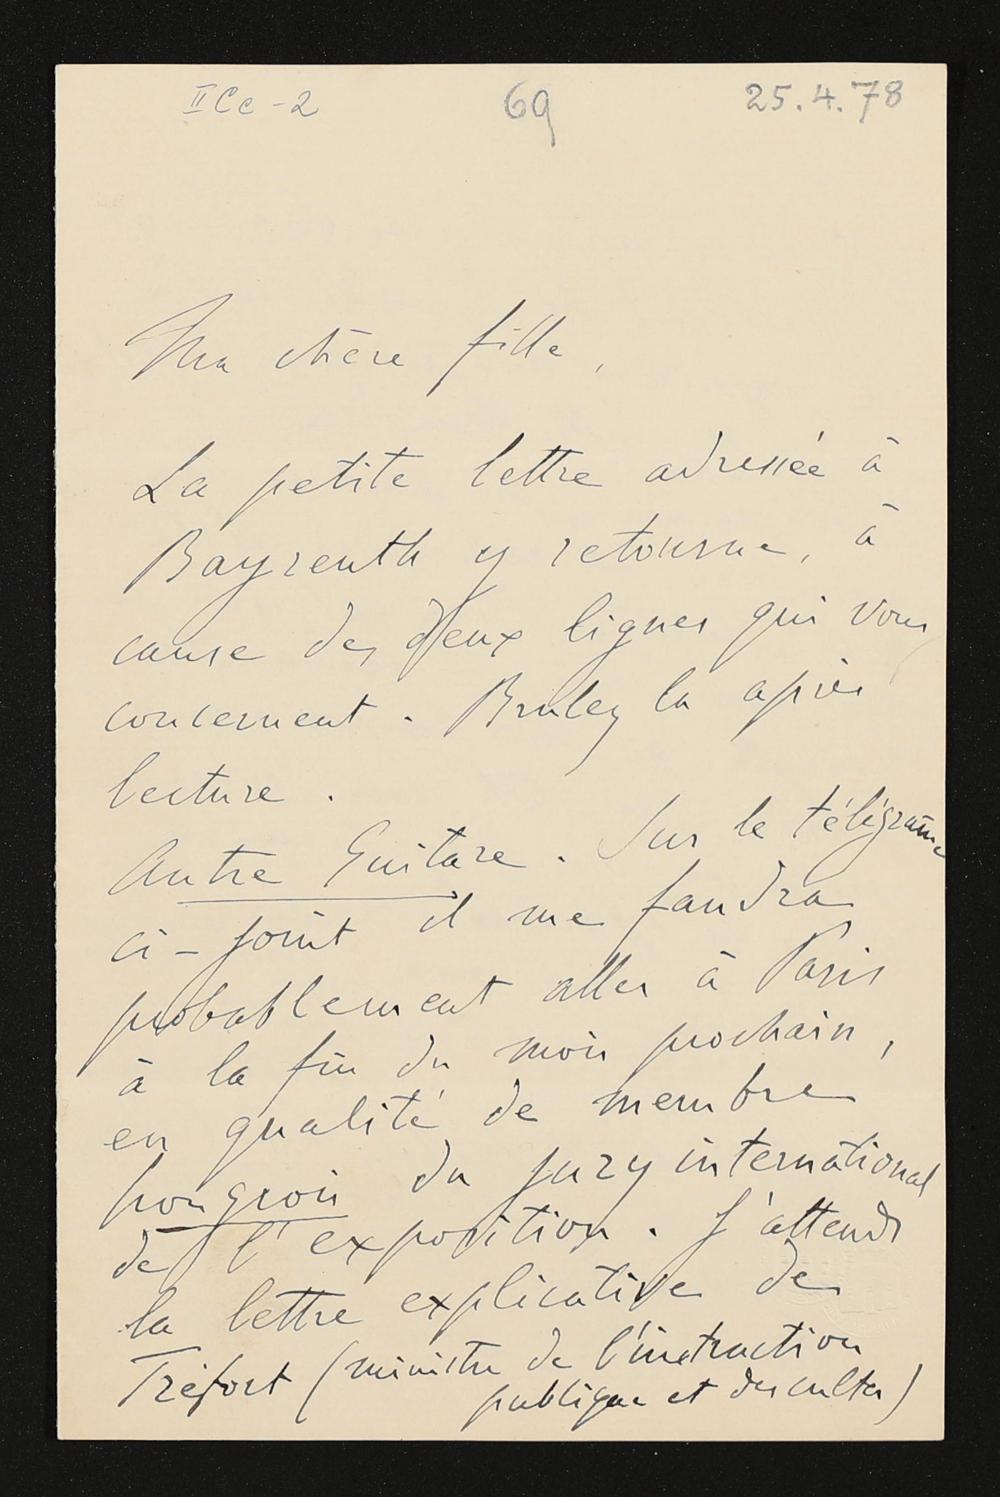 IICc-2 69 25.4.78
Ma chère fille,
La petite lettre adressée à
Bayreuth y retourne, à
cause des deux lignes qui vous
concernent. Brulez la après
lecture.
Autre Guitare. Sur le télégramme
ci-joint il me faudra
probablement aller à Paris
à la fin du mois prochain,
en qualité de membre
hongrois du jury international
de l'exposition. J'attends
la lettre explicative de
Tréfort (ministre de l'instruction
publique et des cultes)